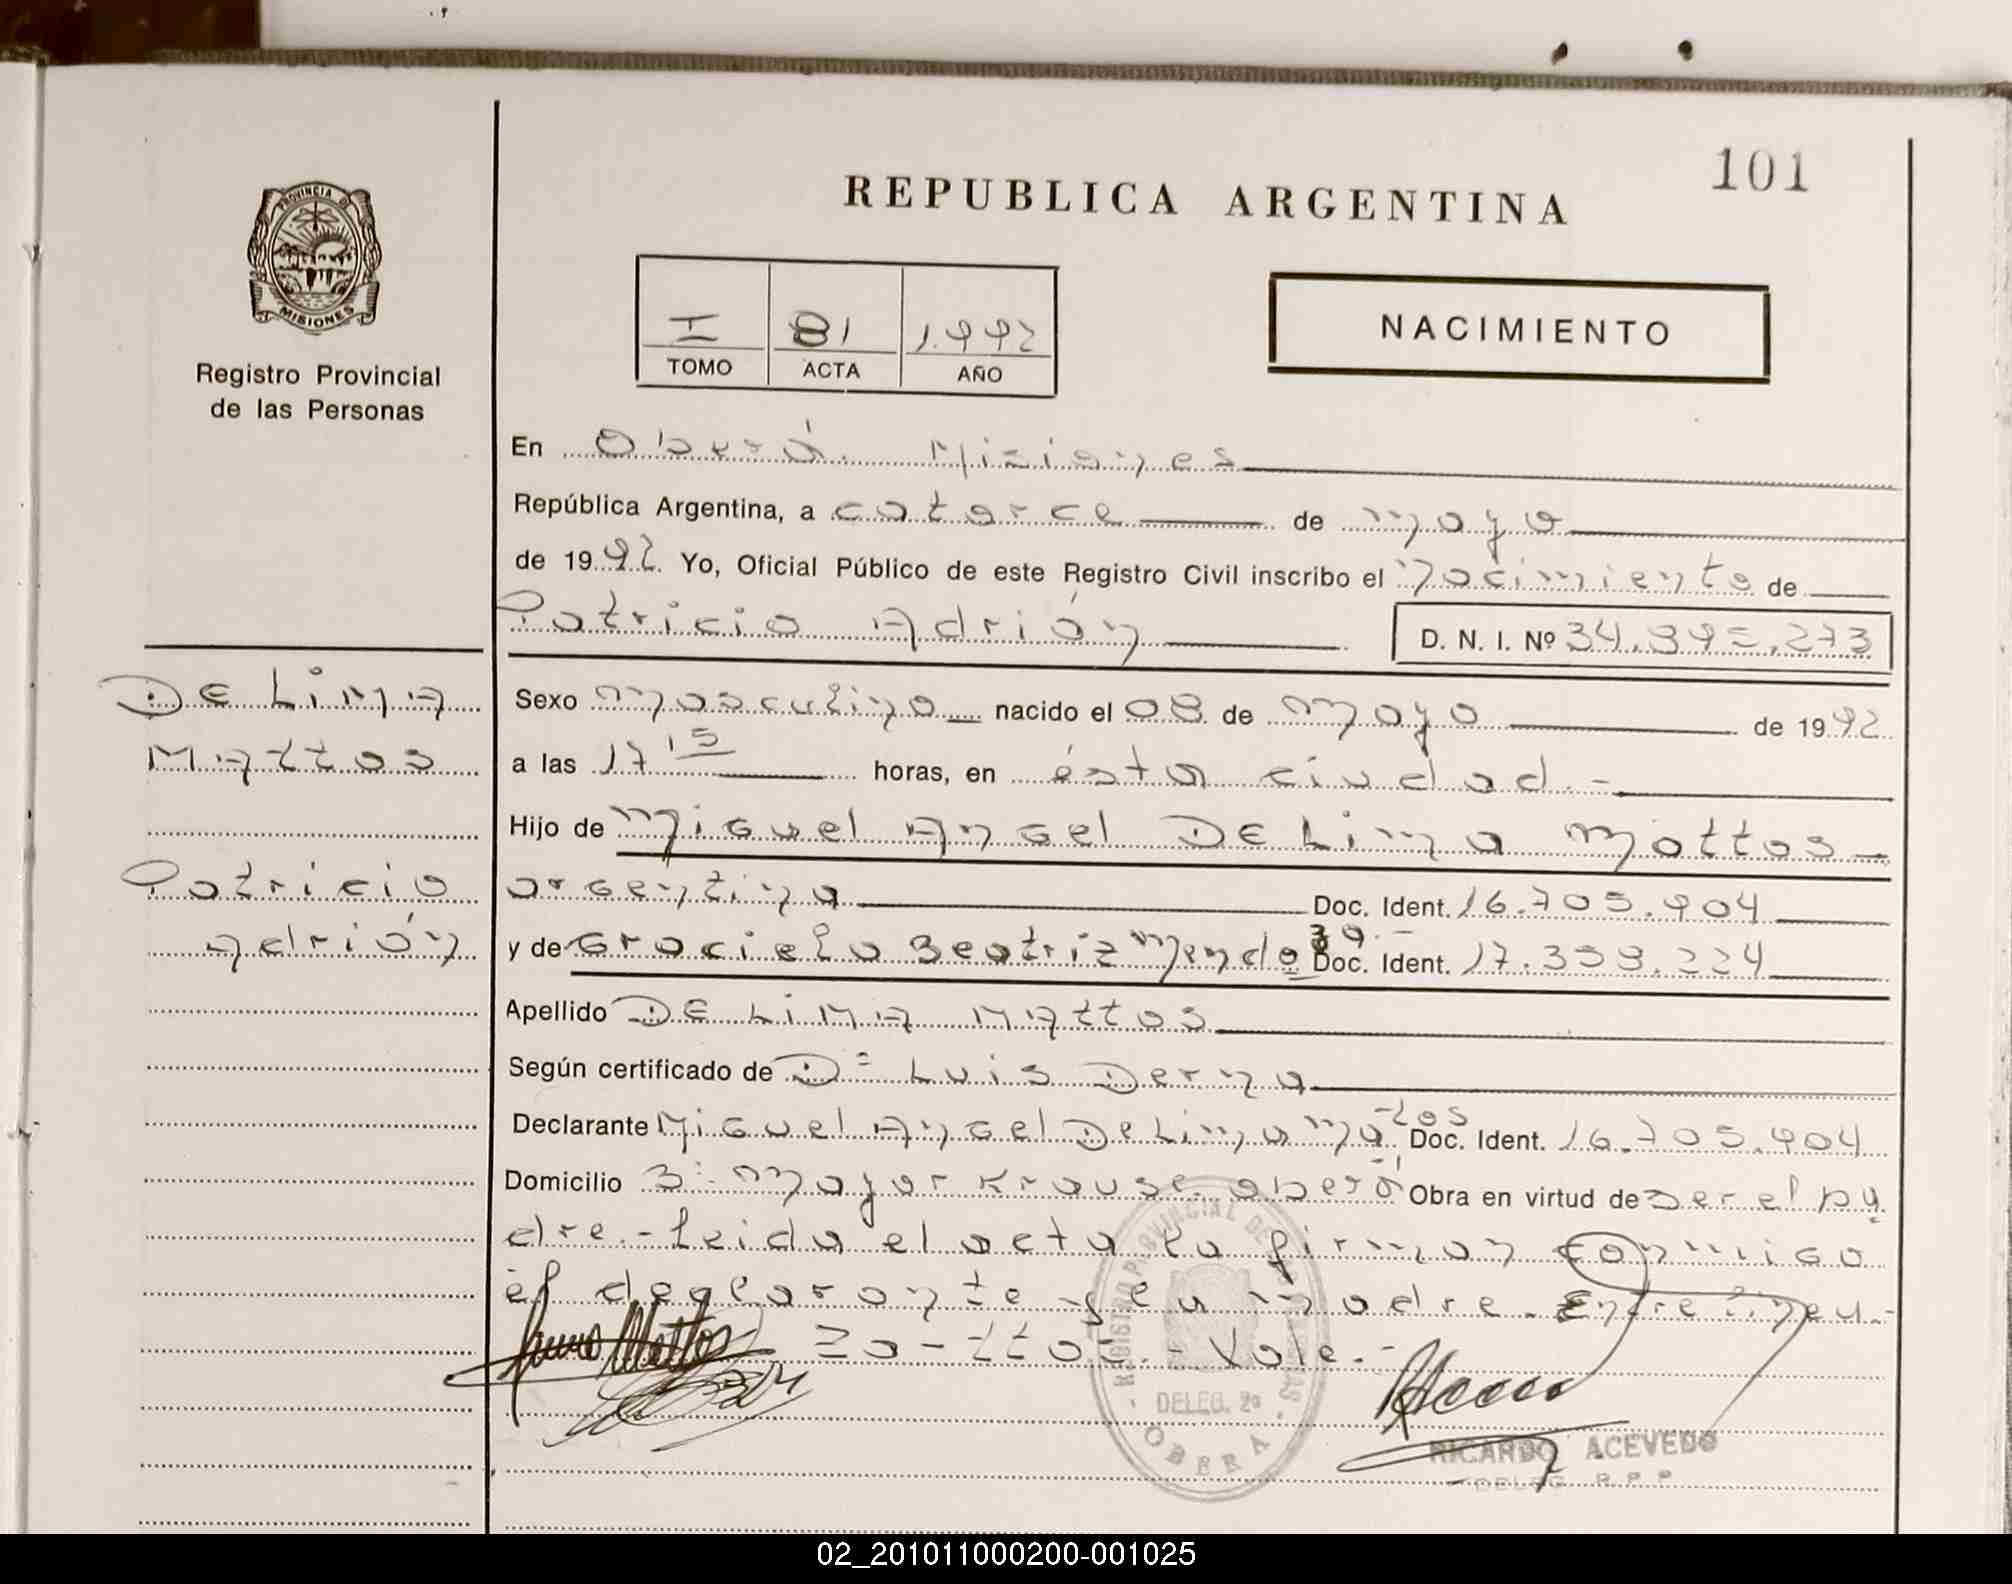 101
REPUBLICA ARGENTINA
PROVINCIA DE
MISIONES
Registro Provincial
de las Personas
I 81 1.992
TOMO ACTA AÑO
NACIMIENTO
En Oberá. Misiones
República Argentina, a catorce de mayo
de 1992. Yo, Oficial Público de este Registro Civil inscribo el nacimiento de
Patricio Adrián D. N. I. Nº 34.395.273
DE Lima
Mattos
Patricio
Adrián
Sexo masculino nacido el 08 de mayo de 1992
a las 17 15 horas, en ésta ciudad.-
Hijo de Miguel Angel DE Lima Mattos
argentina Doc. Ident. 16.705.904
y de Graciela Beatriz Mendo Doc. Ident. 17.359.224
Apellido DE LiMA MAttos
Según certificado de D= Luis Derna
Declarante Miguel Angel De Lima Ma-tos Doc. Ident. 16.705.904
Domicilio 3: mayor Krause. oberá Obra en virtud de ser el pa
dre.- Leida el acta la firman conmigo
él declarante y la madre. Entre linea.-
za-ttos.- Vale.-
REGISTRO PROVINCIAL DE LAS PERSONAS
DELEG. 2ª
OBERA
RICARDO ACEVEDO
DELEG. R.P.P.
02_201011000200-001025